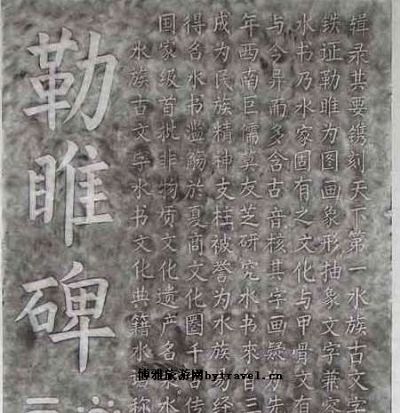 勒雎碑
水族古文字水书文化典籍水称
国家级首批非物质文化遗产名水
得名水书滥觞於夏商文化圈千佳
成为民族精神支柱被誉为水族易经
年西南巨儒莫友芝研究水书來自三
与今异而多含古音核其字画疑为先
水书乃水家固有之文化与甲骨文有
铁证勒雎为图画象形抽象文字兼容
辑录其要镌刻天下第一水族古文字
博雅旅游网bytravel.cn